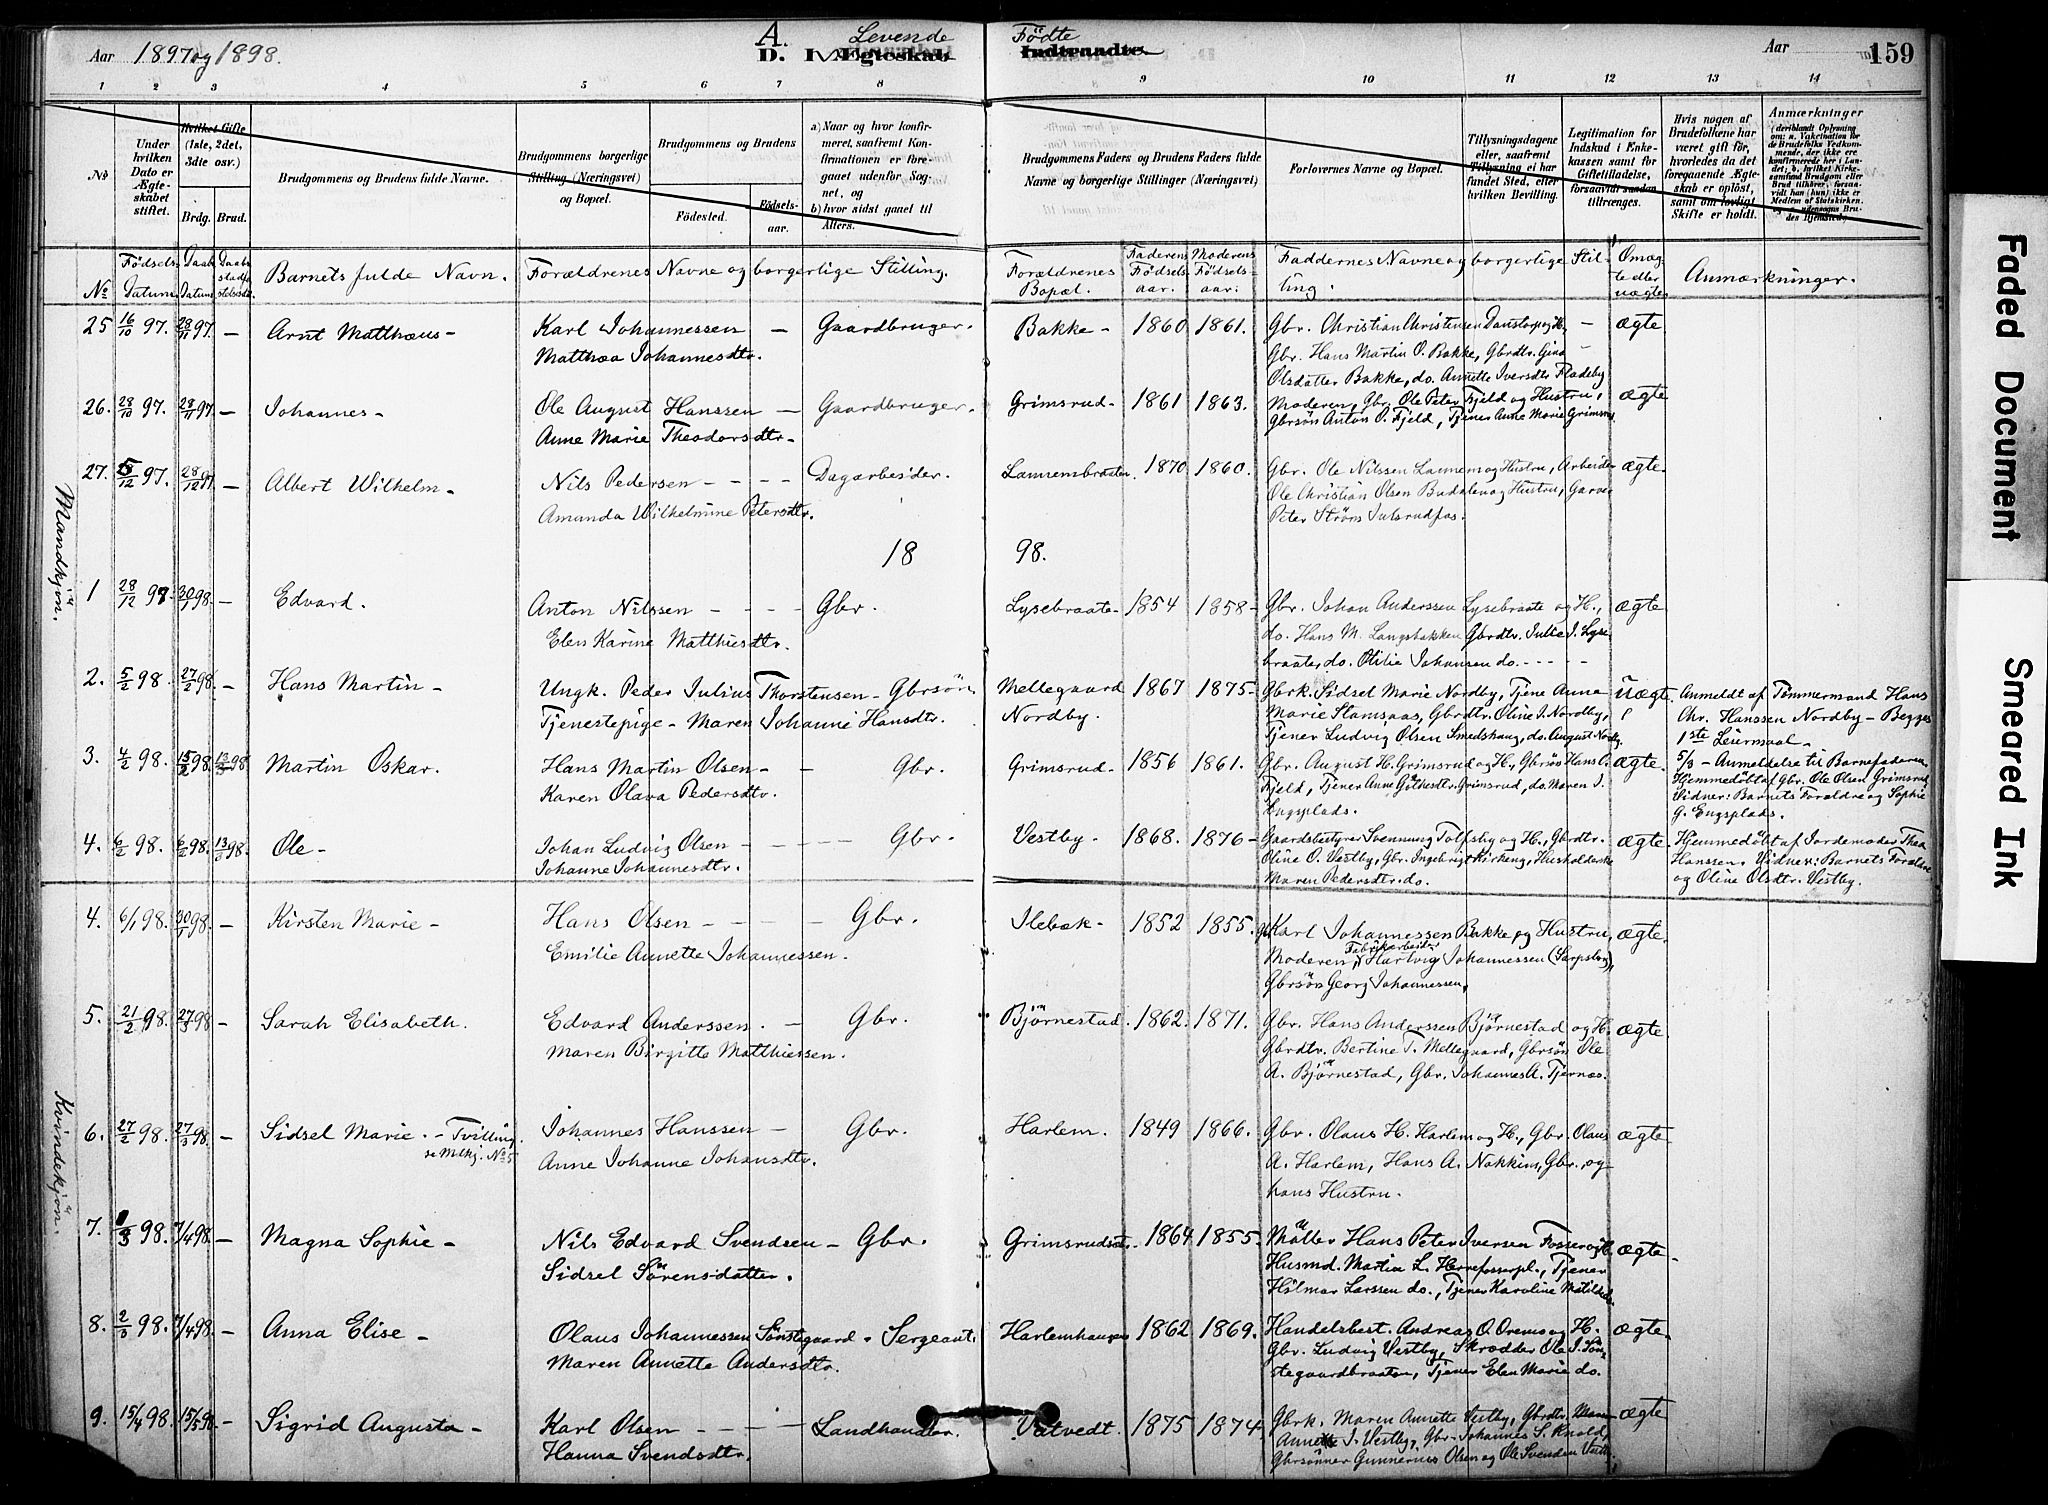 Aar 1897 og 1898.
A. Levende Födte
D. Ægteskab Indtraadte.
Aar 159
1 2 3 4 5 6 7 8 9 10 11 12 13 14
No
Under hvilken Dato er Ægteskabet stiftet.
Hvilket Gifte (1ste, 2det, 3dte osv.)
Brdg. Brud.
Brudgommens og Brudens fulde Navne.
Brudgommens borgerlige Stilling (Næringsvei) og Bopæl.
Brudgommens og Brudens
Fødested. Fødselsaar.
a) Naar og hvor konfirmeret, saafremt Konfirmationen er foregaaet udenfor Sognet, og
b) hvor sidst gaaet til Alters.
Brudgommens Faders og Brudens Faders fulde Navne og borgerlige Stillinger (Næringsvei)
Forlovernes Navne og Bopæl.
Tillysningsdagene eller, saafremt Tillysning ei har fundet Sted, efter hvilken Bevilling.
Legitimation for Indskud i Enkekassen samt for Giftetilladelse, forsaavidt saadan tiltrænges.
Hvis nogen af Brudefolkene har været gift før, hvorledes da det foregaaende Ægteskab er opløst, samt om lovligt Skifte er holdt.
Anmærkninger
No Födsels Datum. Daabs Datum Barnets fulde Navn. Forældrenes Navne og borgerlige Stilling.
Forældrenes Bopæl. Faderens Födselsaar. Moderens Födselsaar. Faddernes Navne og borgerlige Stilling. Ægte eller uægte Anmærkninger.
Mandkjön.
25 16/10 97. 28/11 97. — Arnt Matthæus — Karl Johannessen — Gaardbruger. Bakke — 1860 1861. Gbr. Christian Christensen Danstorp og H. — ægte
Matthæa Johannesdtr. Gbr. Hans Martin O. Bakke, Gbrdtr. Gina
Olsdatter Bakke, do. Annette Iversdtr Fladeby
26. 28/10 97. 28/11 97. — Johannes — Ole August Hanssen — Gaardbruger. Grimsrud — 1861 1863. Moderen, Gbr. Ole Peter Fjeld og Hustru, ægte
Anne Marie Theodorsdtr — Gbrsön Anton O. Fjeld, Tjener Anne Marie Grimsrud
27. 97. 28/12 97 — Albert Wilhelm — Nils Pedersen — Dagarbeider. Lannembraaten. 1870 1860. Gbr. Ole Nilssen Lannem og Hustru, Arbeider ægte
Amanda Wilhelmine Petersdtr. Ole Christian Olsen Budalen og Hustru, Garver
Peter Ström Julsrudfos.
18 98.
1 28/12 97. 30/1 98. — Edvard. Anton Nilssen — Gbr. Lysebraate — 1854 1858 — Gbr. Johan Anderssen Lysebraate og H., ægte
Elen Karine Matthiesdtr. do. Hans M. Langsbakken Gbrdtr. Julie J. Lyse
braate, do. Otilie Johansen do.
2. 5/2 98. 27/2 98. — Hans Martin — Ungk. Peder Julius Thorstensen — Gbrsön Mellegaard 1867 1875 — Gbrk. Sidsel Marie Nordby, Tjene Anna uægte Anmeldt af Tömmermand Hans
Tjenestepige — Maren Johanne Hansdtr. Nordby. Marie Stamsaas, Gbrdtr. Oline J. Nordby, Chr. Hanssen Nordby — Begges
Tjener Ludvig Olsen Smedshaug, do. August Nordby. 1ste Leiermaal —
3. 4/2 98. 15/2 98. 13/3 98 Martin Oskar. Hans Martin Olsen — Gbr. Grimsrud — 1856 1861. Gbr. August H. Grimsrud og H., Gbrsön Hans O. ægte. 5/3 — Anmeldelse til Barnefaderen
Karen Olava Pedersdtr. Fjeld, Tjener Anne Grimsrud, do. Maren J. Hjemmedöbt af Gbr. Ole Olsen Grimsrud
Engsplads. Vidner: Barnets Forældre og Sophie
G. Engsplads.
4. 6/2 98. 6/2 98. 13/3 98. Ole — Johan Ludvig Olsen — Gbr. Vestby. 1868. 1876 — Gaardsbestyrer Svennung Tolfsby og H., Gbrdtr. ægte. Hjemmedöbt af Jordemoder Thea
Johanne Johannesdtr. Oline O. Vestby, Gbr. Ingebrigt Kirkeng, Husholderske Hanssen. Vidner: Barnets Forældre
Maren Pedersdtr. do. og Oline Olsdtr. Vestby.
Kvindekjön.
4. 6/1 98. 30/1 98. — Kirsten Marie — Hans Olsen — Gbr. Ilebæk — 1852 1855. Karl Johannessen Bakke og Hustru, ægte.
Emilie Annette Johannessen. Moderen, Fabrikarbeider Hartvig Johannessen (Sarpsborg),
Gbrsön Georg Johannessen,
5. 21/2 98. 27/3 98 — Sarah Elisabeth. Edvard Anderssen. — Gbr. Björnestad. 1862. 1871. Gbr. Hans Anderssen Björnestad og H. ægte.
Maren Birgitte Matthiessen. Gbrdtr. Bertine T. Mellegaard, Gbrsön Ole
A. Björnestad, Gbr. Johannes A. Tjernæs.
6. 27/2 98. 27/3 98. — Sidsel Marie. — Tvilling. Johannes Hanssen — Gbr. Harlem. 1849 1866. Gbr. Olaus H. Harlem og H., Gbr. Olaus ægte
se Mlkj. No 5 Anne Johanne Johansdtr. A. Harlem, Hans A. Nakkim, Gbr. og
hans Hustru.
7. 98. 7/4 98. — Magna Sophie — Nils Edvard Svendsen — Gbr. 1864 1855. Möller Hans Peter Iversen ægte —
Sidsel Sörensdatter. Husmd. Martin L. Tjener
Hilmar Larssen do., Tjener Karoline Matilde do.
8. 2/3 98. 7/4 98. — Anna Elise — Olaus Johannessen Sönstegaard. Sergeant. Harlemhaugen 1862 1869. Handelsbest. Andreas O. Oremo og H. ægte.
Maren Annette Andersdtr. Gbr. Ludvig Vestby, Skrædder Ole J. Sön-
stegaardbraaten, Tjener Elen Marie do.
9. 15/4 98. 15/5 98. — Sigrid Augusta — Karl Olsen — Landhandler. Vatvedt. 1875 1874. Gbrk. Maren Annette Vestby, Gbrdtr. ægte
Hanna Svendsdtr. Annette J. Vestby, Gbr. Johannes S. Knold,
Gbrsönner Gunnerius Olsen og Ole Svendsen
Faded Document
Smeared Ink